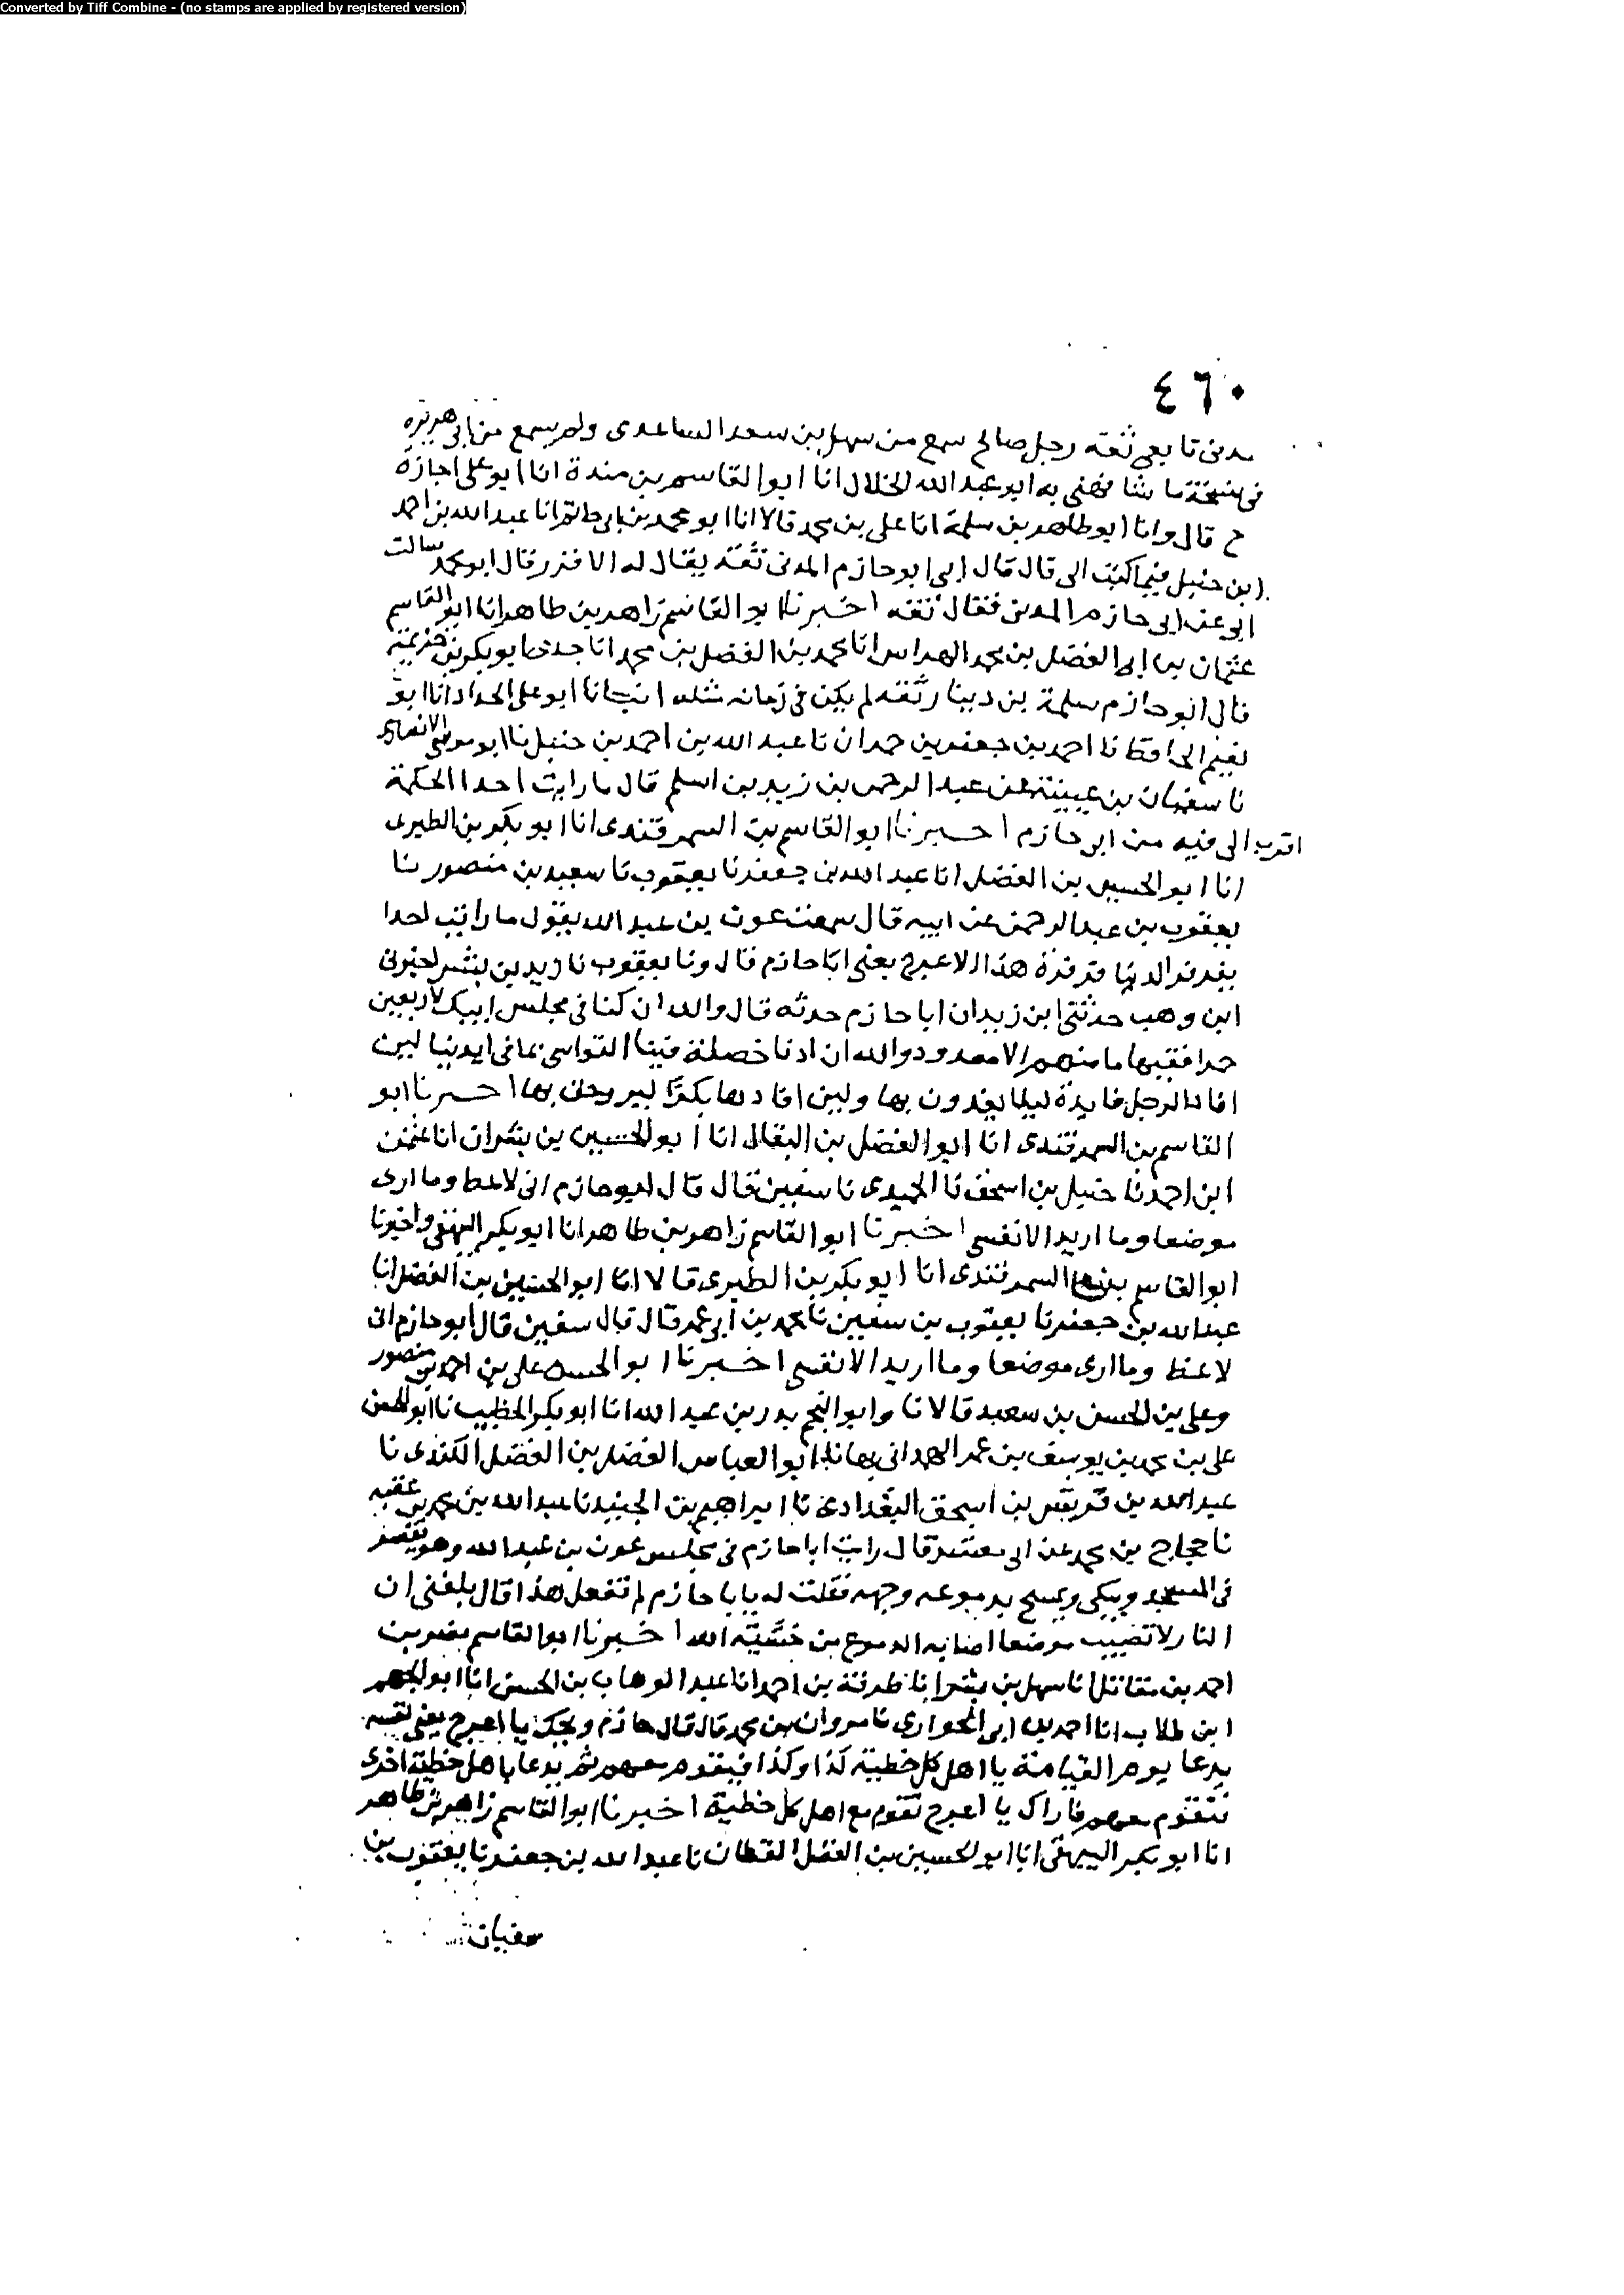 Converted by Tiff Combine - (no stamps are applied by registered version)
٤٦٠
مدنى تابعى ثقه رجل صالح سمع من سهل بن سعد الساعدى ولم يسمع من ابى هريره
فى نسخة ما شافهنى به ابو عبد الله الخلال انا ابو القاسم بن مندة انا ابو على اجازة
ح قال وانا ابو طاهر بن سلمة انا على بن محمد قالا انا ابو محمد بن ابى حاتم انا عبد الله بن احمد
ابن حنبل فيما كتب الى قال قال ابى ابو حازم المدنى ثقة يقال له الافزر قال ابو محمد سالت
ابى عن ابى حازم المدنى فقال ثقه اخبرنا ابو القاسم زاهر بن طاهر انا ابو القاسم
عثمان بن ابى الفضل بن محمد الهراس انا محمد بن الفضل بن محمد انا جدى ابو بكر بن خزيمة
قال ابو حازم سلمة بن دينار ثقه لم يكن فى زمانه مثله انبانا ابو على الحداد انا ابو
نعيم الحافظ نا احمد بن جعفر بن حمدان نا عبد الله بن احمد بن حنبل نا ابو موسى الانصارى
نا سفيان بن عيينة عن عبد الرحمن بن زيد بن اسلم قال ما رايت احدا الحكمة
اقرب الى فيه من ابى حازم اخبرنا ابو القاسم بن السمرقندى انا ابو بكر بن الطبرى
انا ابو الحسين بن الفضل انا عبد الله بن جعفر نا يعقوب نا سعيد بن منصور نا
يعقوب بن عبد الرحمن عن ابيه قال سمعت عون بن عبد الله يقول ما رايت احدا
يفرفر الدنيا فرفرة هذا الاعرج يعنى ابا حازم قال ونا يعقوب نا زيد بن بشر اخبرنى
ابن وهب حدثنى ابن زيد ان ابا حازم حدثه قال والله ان كنا فى مجلس ابيك لاربعين
حبرا فقيها ما منهم الا معدود والله ان ادنا خصلة فينا التواسى بما فى ايدينا لين
افاد الرجل فايدة ليلا يغدون بها ولين افادها بكرًا ليروحن بها اخبرنا ابو
القاسم بن السمرقندى انا ابو الفضل بن البقال انا ابو الحسين بن بشران انا عثمن
ابن احمد نا حنبل بن اسحق نا الحميدى نا سفين قال قال ابو حازم انى لاعظ وما ارى
موضعا وما اريد الا نفسى اخبرنا ابو القاسم زاهر بن طاهر انا ابو بكر البيهقى واخبرنا
ابو القاسم بن السمرقندى انا ابو بكر بن الطبرى قالا انا ابو الحسين بن الفضل انا
عبد الله بن جعفر نا يعقوب بن سفين نا محمد بن ابى عمر قال قال سفين قال ابو حازم انى
لاعظ وما ارى موضعا وما اريد الا نفسى اخبرنا ابو الحسن على بن احمد بن منصور
وعلى بن الحسن بن سعيد قالا نا وابو النجم بدر بن عبد الله انا ابو بكر الخطيب نا ابو الحسن
على بن محمد بن يوسف بن عمر الهمدانى بها نا ابو العباس الفضل بن الفضل الكندى نا
عبد الله بن قريش بن اسحق البغدادى نا ابراهيم بن الجنيد نا عبد الله بن محمد بن عقبه
نا حجاج بن محمد عن ابى معشر قال رايت ابا حازم فى مجلس عون بن عبد الله وهو يقص
فى المسجد ويبكى ويمسح بدموعه وجهه فقلت له يابا حازم لم تفعل هذا قال بلغنى ان
النار لا تصيب موضعا اصابه الدموع من خشية الله اخبرنا ابو القاسم نصر بن
احمد بن مقاتل انا سهل بن بشر انا طرفة بن احمد انا عبد الوهاب بن الحسن انا ابو الجهم
ابن طلاب انا احمد بن ابى الحوارى نا مروان بن محمد قال قال حازم ويحك يا اعرج يعنى نفسه
يدعا يوم القيامة يا اهل كل خطية كذا وكذا فيقوم معهم ثم يدعا يا اهل خطية اخرى
فتقوم معهم فاراك يا اعرج تقوم مع اهل كل خطية اخبرنا ابو القاسم زاهر بن طاهر
انا ابو بكر البيهقى انا ابو الحسين بن الفضل القطان نا عبد الله بن جعفر نا يعقوب بن
سفيان